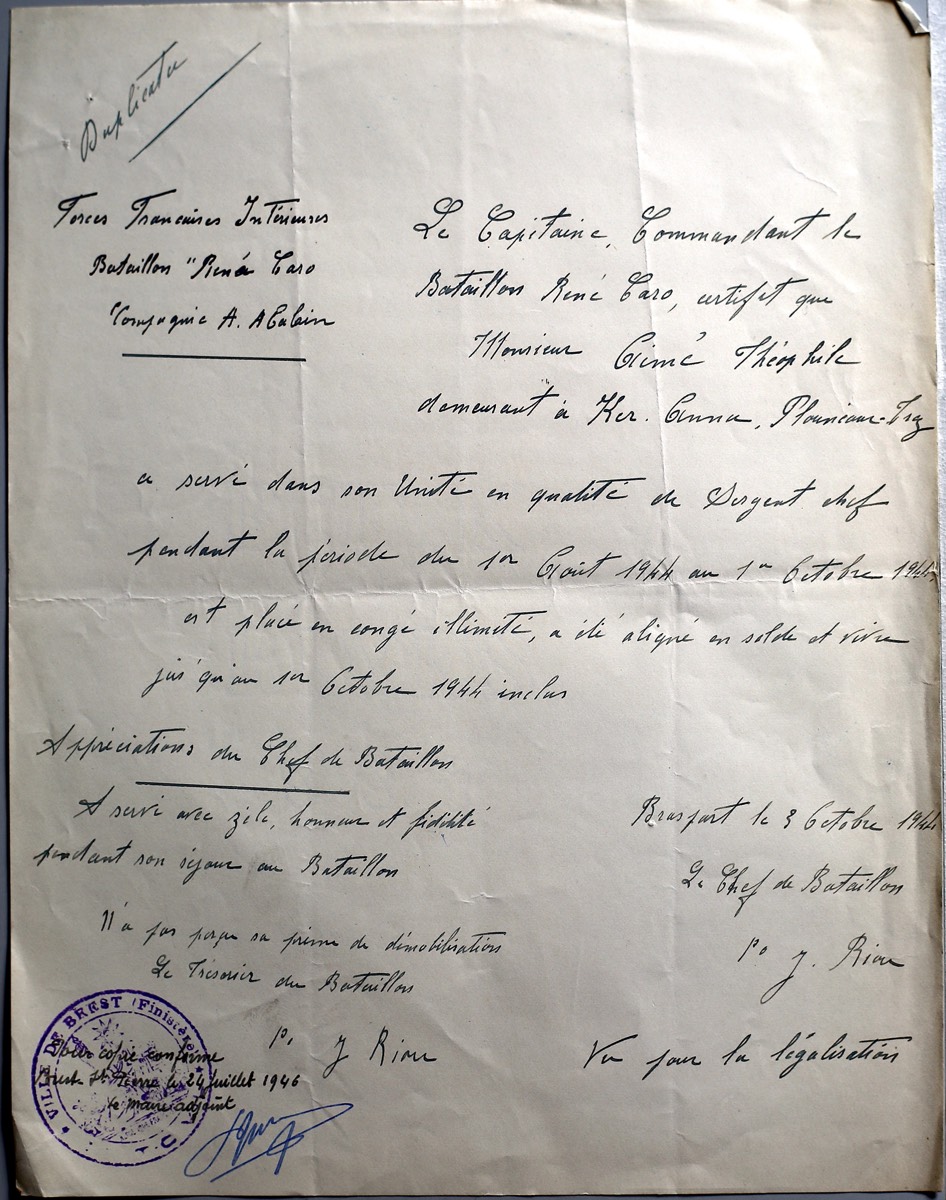 Duplicata
Forces Francaises Intérieures
Bataillon "René Caro
Compagnie A.
Le Capitaine, Commandant le
Bataillon René Caro, certifit que
Monsieur Aimé Théophile
demeurant à Ker. Anna, Plounéour-Trez
a servi dans son Unité en qualité de Sergent chef
pendant la période du 1er Août 1944 au 1er Octobre 1944
est placé en congé illimité, a été aligné en solde et vivre
jus'qu'au 1er Octobre 1944 inclus
Appréciations du Chef de Bataillon
A servi avec zèle, honneur et fidélité
pendant son séjour au Bataillon
Braspart le 3 Octobre 1944
Le Chef de Bataillon
N'a pas perçu sa prime de démobilisation
Le Trésorier du Bataillon
Po J. Riou
Po J Riou
Vu pour la légalisation
VILLE DE BREST (Finistère)
Pour copie conforme
Brest St Pierre le 24 juillet 1946
le maire adjoint